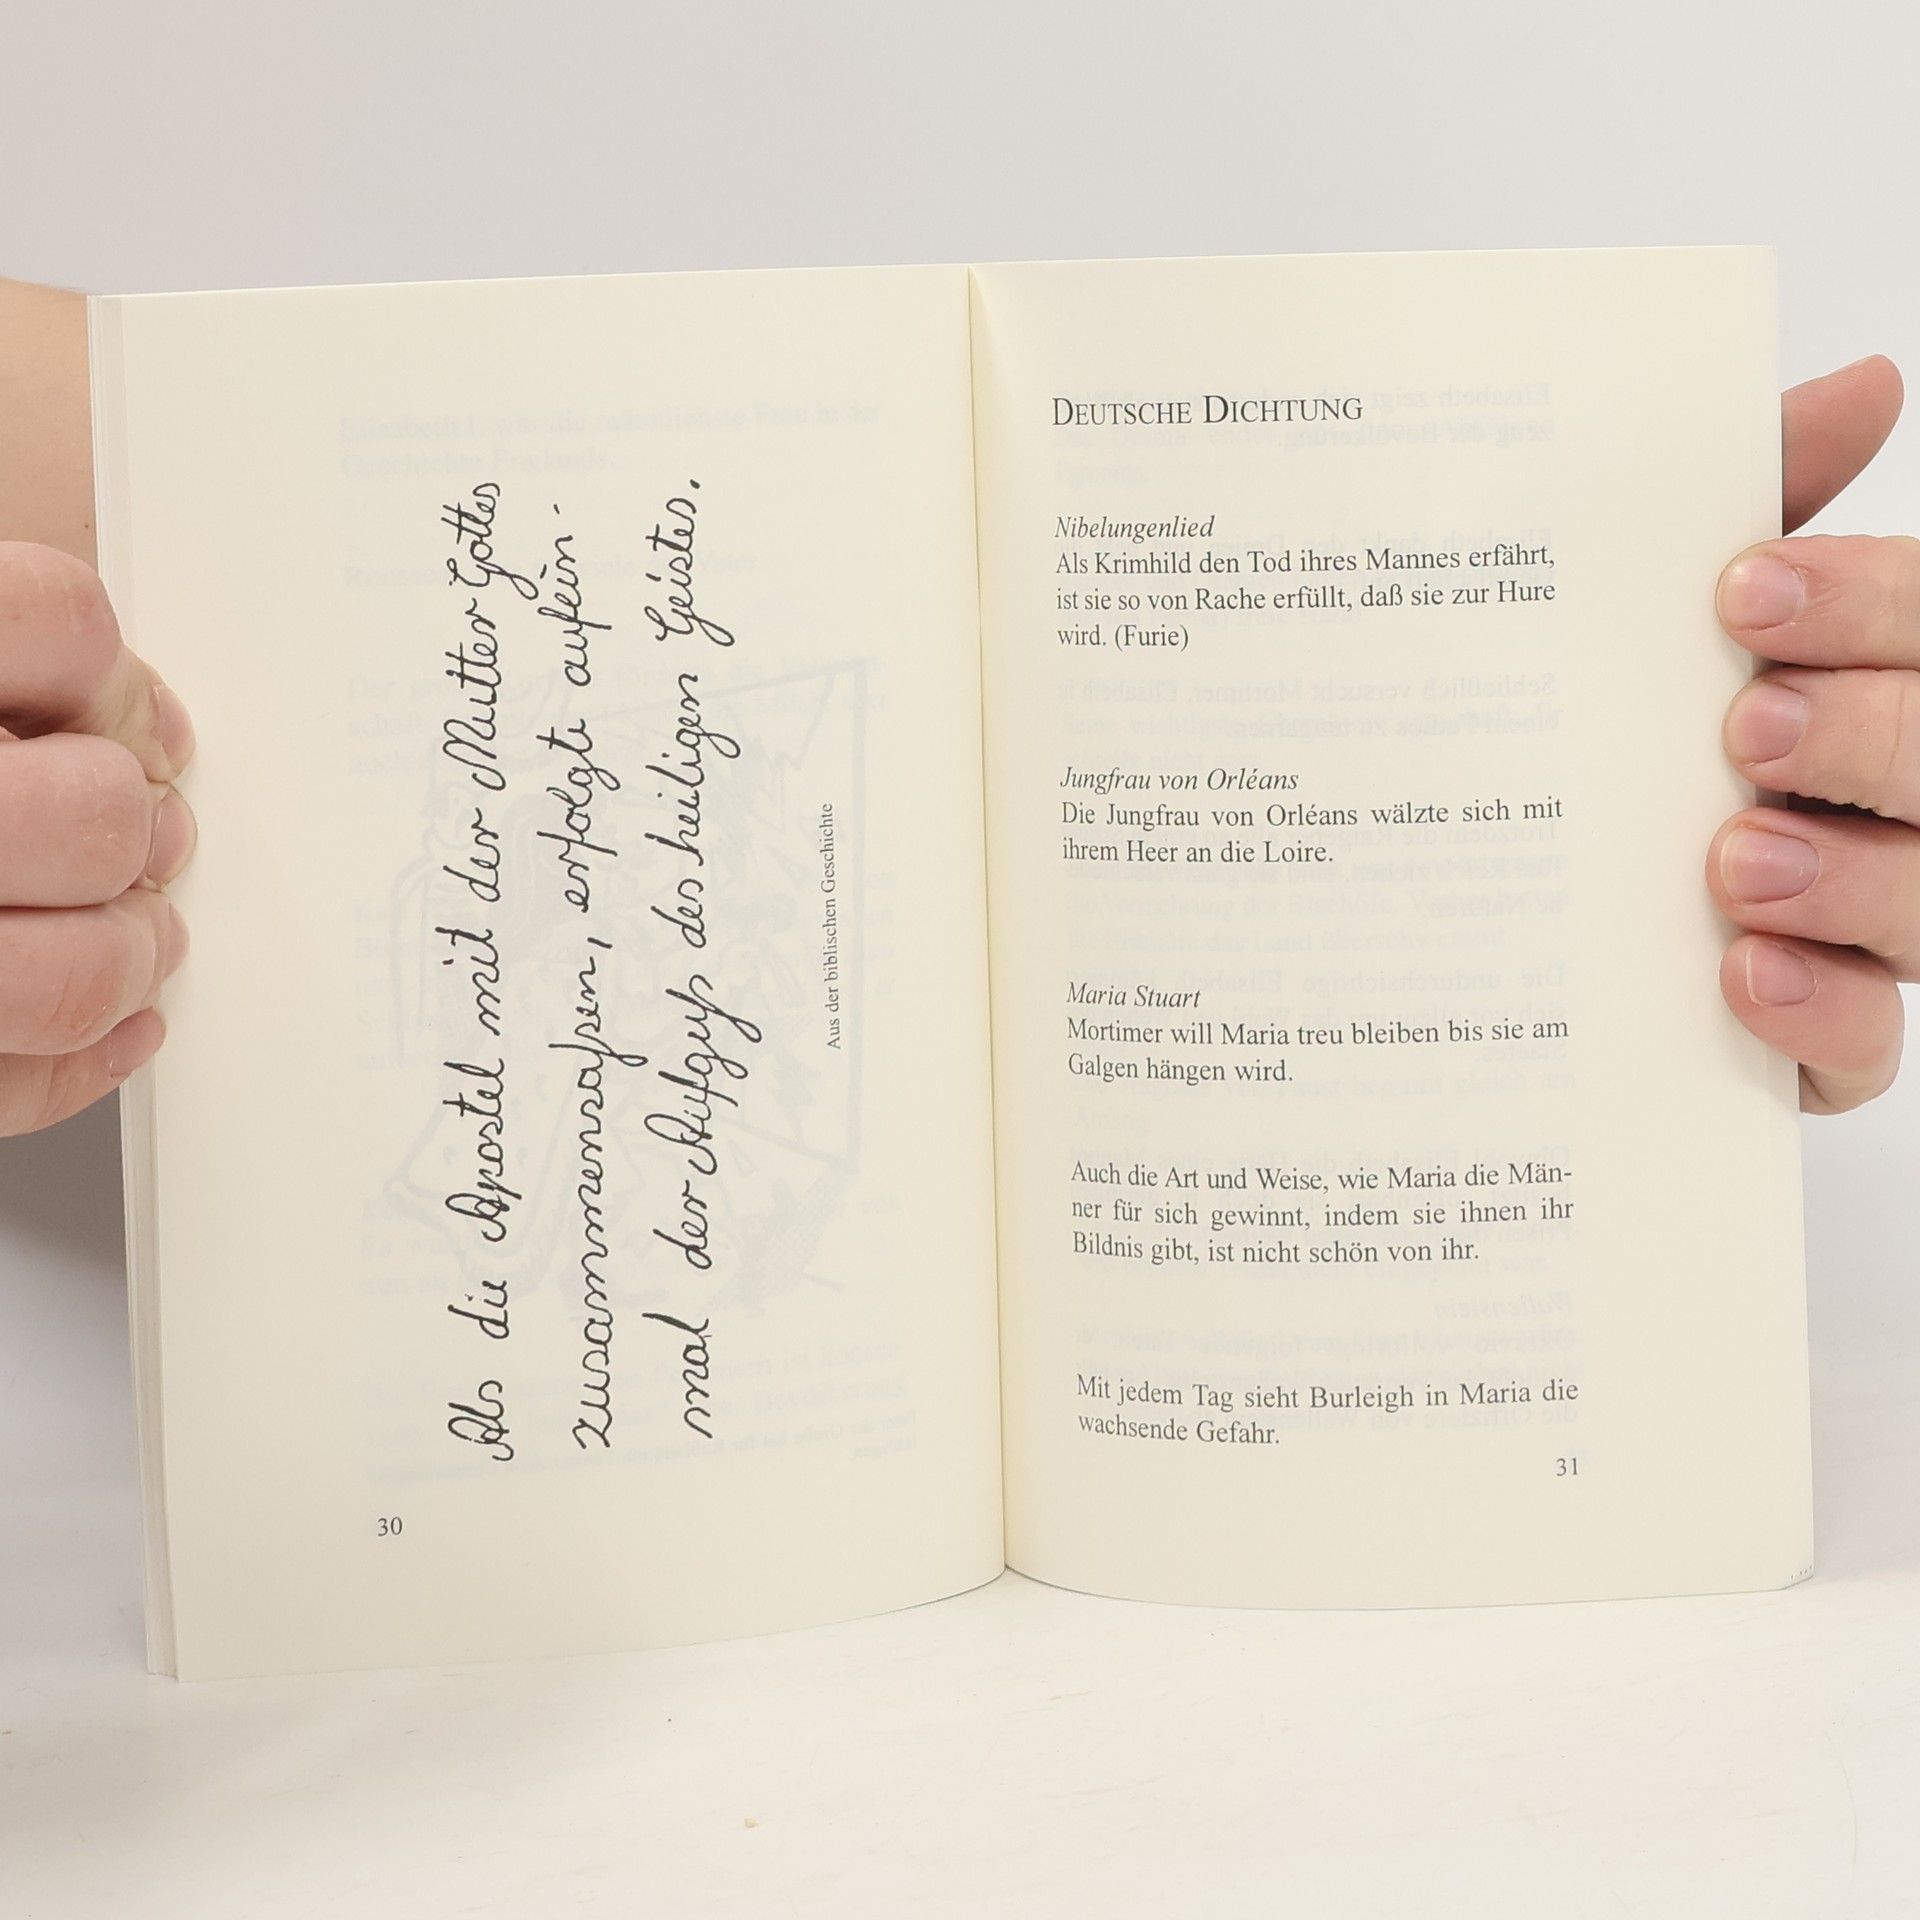 Als die Apostel mit der Mutter Gottes
zusammensaßen, erfolgte aufein-
mal der Aufguß des heiligen Geistes.
Aus der biblischen Geschichte
30
DEUTSCHE DICHTUNG
Nibelungenlied
Als Krimhild den Tod ihres Mannes erfährt,
ist sie so von Rache erfüllt, daß sie zur Hure
wird. (Furie)
Jungfrau von Orléans
Die Jungfrau von Orléans wälzte sich mit
ihrem Heer an die Loire.
Maria Stuart
Mortimer will Maria treu bleiben bis sie am
Galgen hängen wird.
Auch die Art und Weise, wie Maria die Män-
ner für sich gewinnt, indem sie ihnen ihr
Bildnis gibt, ist nicht schön von ihr.
Mit jedem Tag sieht Burleigh in Maria die
wachsende Gefahr.
31